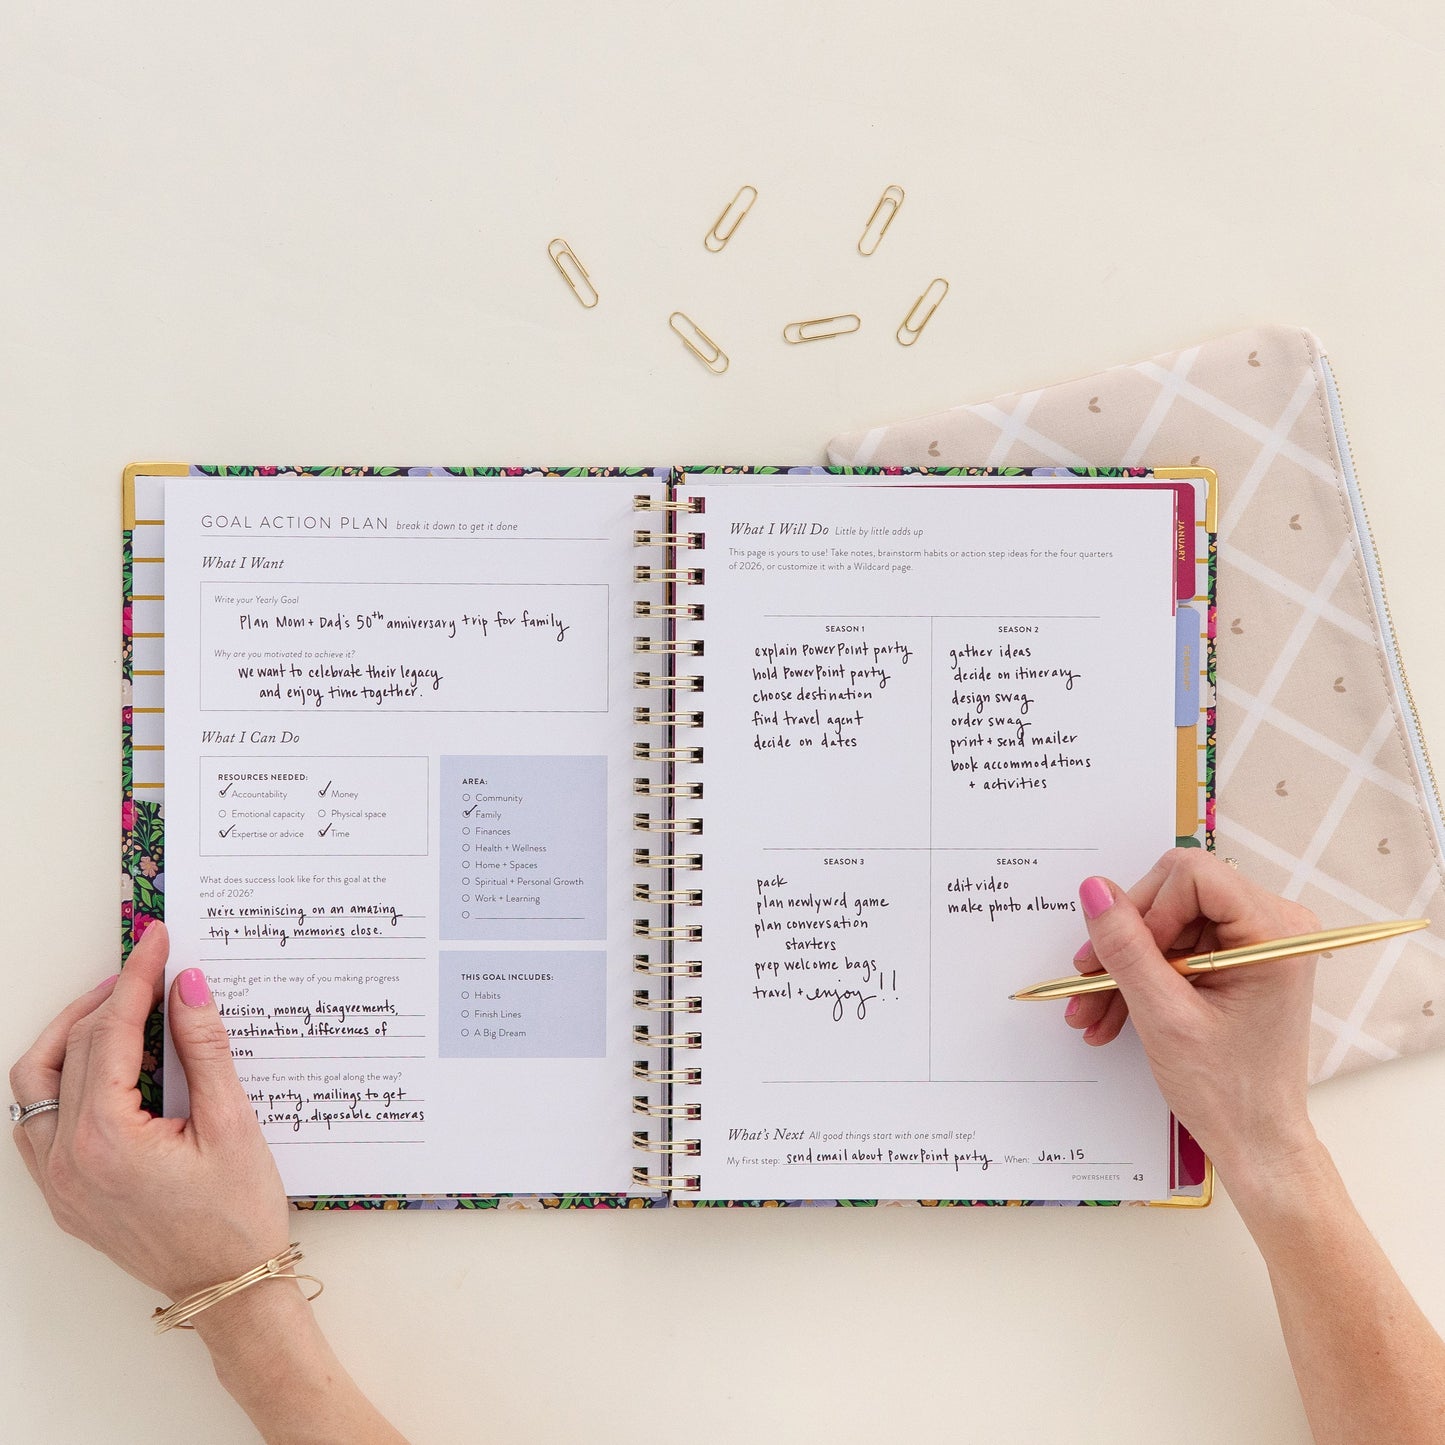 GOAL ACTION PLAN break it down to get it done
What I Want
Write your Yearly Goal
Plan Mom + Dad's 50th anniversary trip for family
Why are you motivated to achieve it?
we want to celebrate their legacy
and enjoy time together.
What I Can Do
RESOURCES NEEDED:
Accountability Money
Emotional capacity Physical space
Expertise or advice Time
AREA:
Community
Family
Finances
Health + Wellness
Home + Spaces
Spiritual + Personal Growth
Work + Learning
What does success look like for this goal at the
end of 2026?
We're reminiscing on an amazing
trip + holding memories close.
What might get in the way of you making progress
this goal?
decision, money disagreements,
crastination, differences of
nion
THIS GOAL INCLUDES:
Habits
Finish Lines
A Big Dream
you have fun with this goal along the way?
int party, mailings to get
, swag, disposable cameras
What I Will Do Little by little adds up
This page is yours to use! Take notes, brainstorm habits or action step ideas for the four quarters
of 2026, or customize it with a Wildcard page.
SEASON 1
explain PowerPoint party
hold PowerPoint party
choose destination
find travel agent
decide on dates
SEASON 2
gather ideas
decide on itinerary
design swag
order swag
print + send mailer
book accommodations
+ activities
SEASON 3
pack
plan newlywed game
plan conversation
starters
prep welcome bags
travel + enjoy!!
SEASON 4
edit video
make photo albums
What's Next All good things start with one small step!
My first step: send email about PowerPoint party When: Jan. 15
POWERSHEETS 43
JANUARY